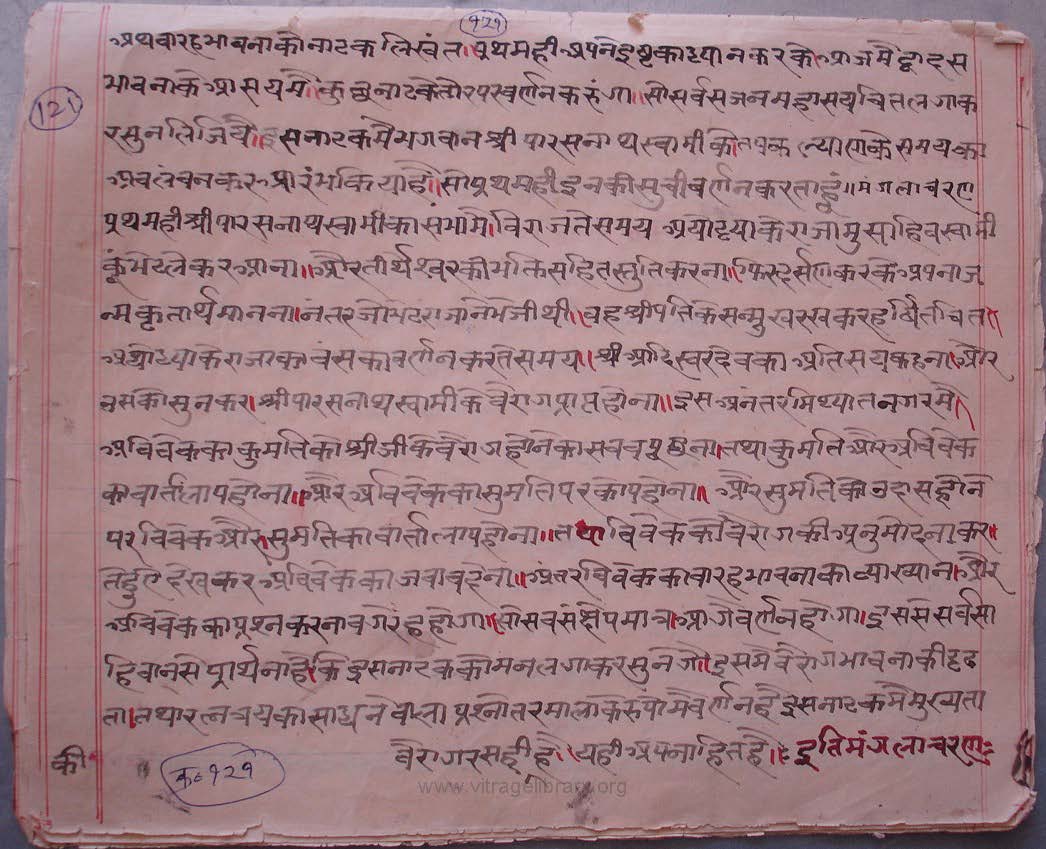 १२१
अथ बारह भावना को नाटक लिखंत॥ प्रथम ही अपने इष्ट का ध्यान करकै आज मै द्वादस
121
भावना के आसय मै कुछ नाटक तोर पर वर्णन करुंगा॥ सो सर्व सजन महासय चित लगाक
र सुन लिजियै॥ इस नाटक मै भगवान श्री पारसनाथ स्वामी के तप कल्याण के समय का
अवलंबन कर प्रारंभ किया है॥ सो प्रथम ही इन की सुची वर्णन करता हूं॥ मंगलाचरण
प्रथम ही श्री पारसनाथ स्वामी का सभा मे विराजते समय अयोध्या के राजा मुसाहिब स्वामी
कूं भेट लेकर आना॥ और तीर्थेश्वर की भक्ति सहित स्तुति करना॥ फिर दर्सण करकै अपना ज
न्म कृतार्थ मानना॥ नंतर जो भेट राजा ने भेजी थी॥ वह श्रीपति के सन्मुख रखकर हर्षित चित॥
अयोध्या के राजा का वंस का वर्णन करते समय॥ श्री आदिस्वर देव का अतिसय कहना॥ और
उस को सुनकर॥ श्री पारसनाथ स्वामी के वैराग प्राप्त होना॥ इस अनंतर मिथ्यात नगर मै॥
अविवेक का कुमति को श्रीजी के वैराग होने का सबब पूछना॥ तथा कुमति और अविवेक
का वार्तालाप होना॥ और अविवेक का सुमति पर कोप होना॥ और सुमति को उदास होने
पर विवेक और सुमति का वार्तालाप होना॥ तथा विवेक को वैराग की अनुमोदना कर॥
ते हुए देखकर अविवेक का जवाब देना॥ अंतर विवेक का बारह भावना का व्याख्यान॥ और
अविवेक का प्रश्न करना वगेरह होगा॥ सो सब संक्षेप मात्र आगे वर्णन होगा॥ इस से सर्व सा
हिबान से प्रार्थना है कि इस नाटक को मन लगाकर सुनेगे॥ इस मे वैराग भावना की दृढ
ता॥ तथा रत्नत्रय का साधन वोला प्रश्नोतर माला के रुप मे वर्णन है इस नाटक मै मुख्यता
की
वैराग रस ही है॥ यही अपना हित है॥ : इति मंगलाचरण :
क० १२१
www.vitragelibrary.org